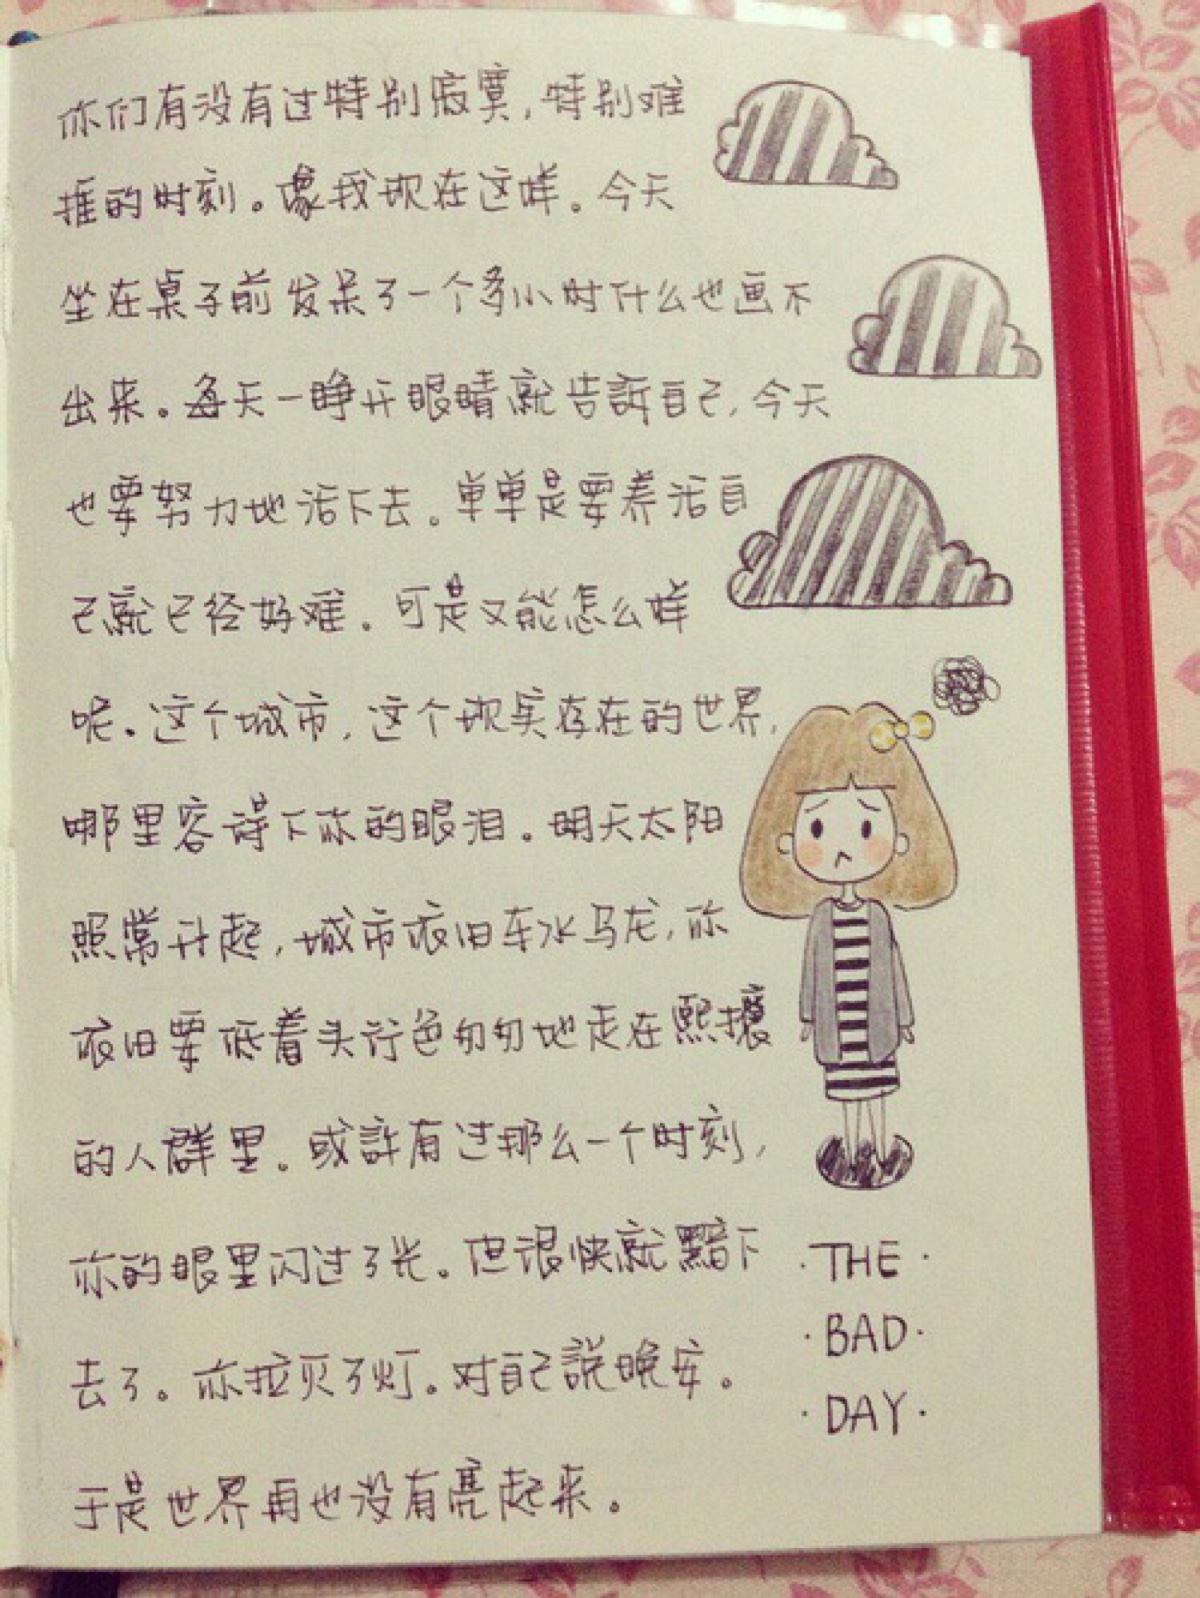 你们有没有过特别寂寞，特别难
捱的时刻。像我现在这样。今天
坐在桌子前发呆了一个多小时什么也画不
出来。每天一睁开眼睛就告訴自己，今天
也要努力地活下去。单单是要养活自
己就已经好难。可是又能怎么样
呢。这个城市，这个现实存在的世界，
哪里容得下你的眼泪。明天太阳
照常升起，城市依旧车水马龙，你
依旧要低着头行色匆匆地走在熙攘
的人群里。或許有过那么一个时刻，
你的眼里闪过了光。但很快就黯下
去了。你拉灭了灯。对自己說晚安。
于是世界再也没有亮起来。
·THE·
·BAD·
·DAY·